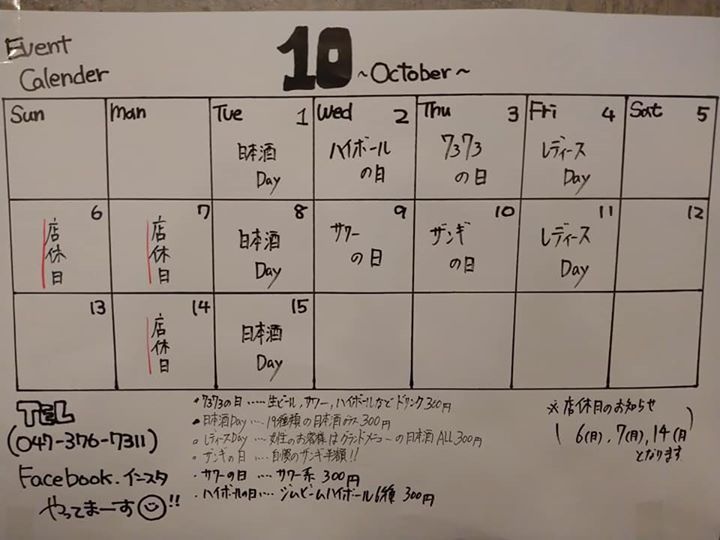 Event
Calender
10 ~October~
Sun Man Tue 1 Wed 2 Thu 3 Fri 4 Sat 5
日本酒 Day
ハイボールの日
7373の日
レディース Day
6 7 8 9 10 11 12
店休日
店休日
日本酒 Day
サワーの日
ザンギの日
レディース Day
13 14 15
店休日
日本酒 Day
TEL
(047-376-7311)
Facebook.インスタ
やってまーす!!
・7373の日‥‥生ビール,サワー,ハイボールなどドリンク300円
・日本酒Day‥‥19種類の日本酒 300円
・レディースDay‥‥女性のお客様はグランドメニューの日本酒ALL300円
・ザンギの日‥‥自慢のザンギ半額!!
・サワーの日‥‥サワー系 300円
・ハイボールの日‥‥ジムビームハイボール6種 300円
※店休日のお知らせ
(6(月),7(月),14(月)
となります)